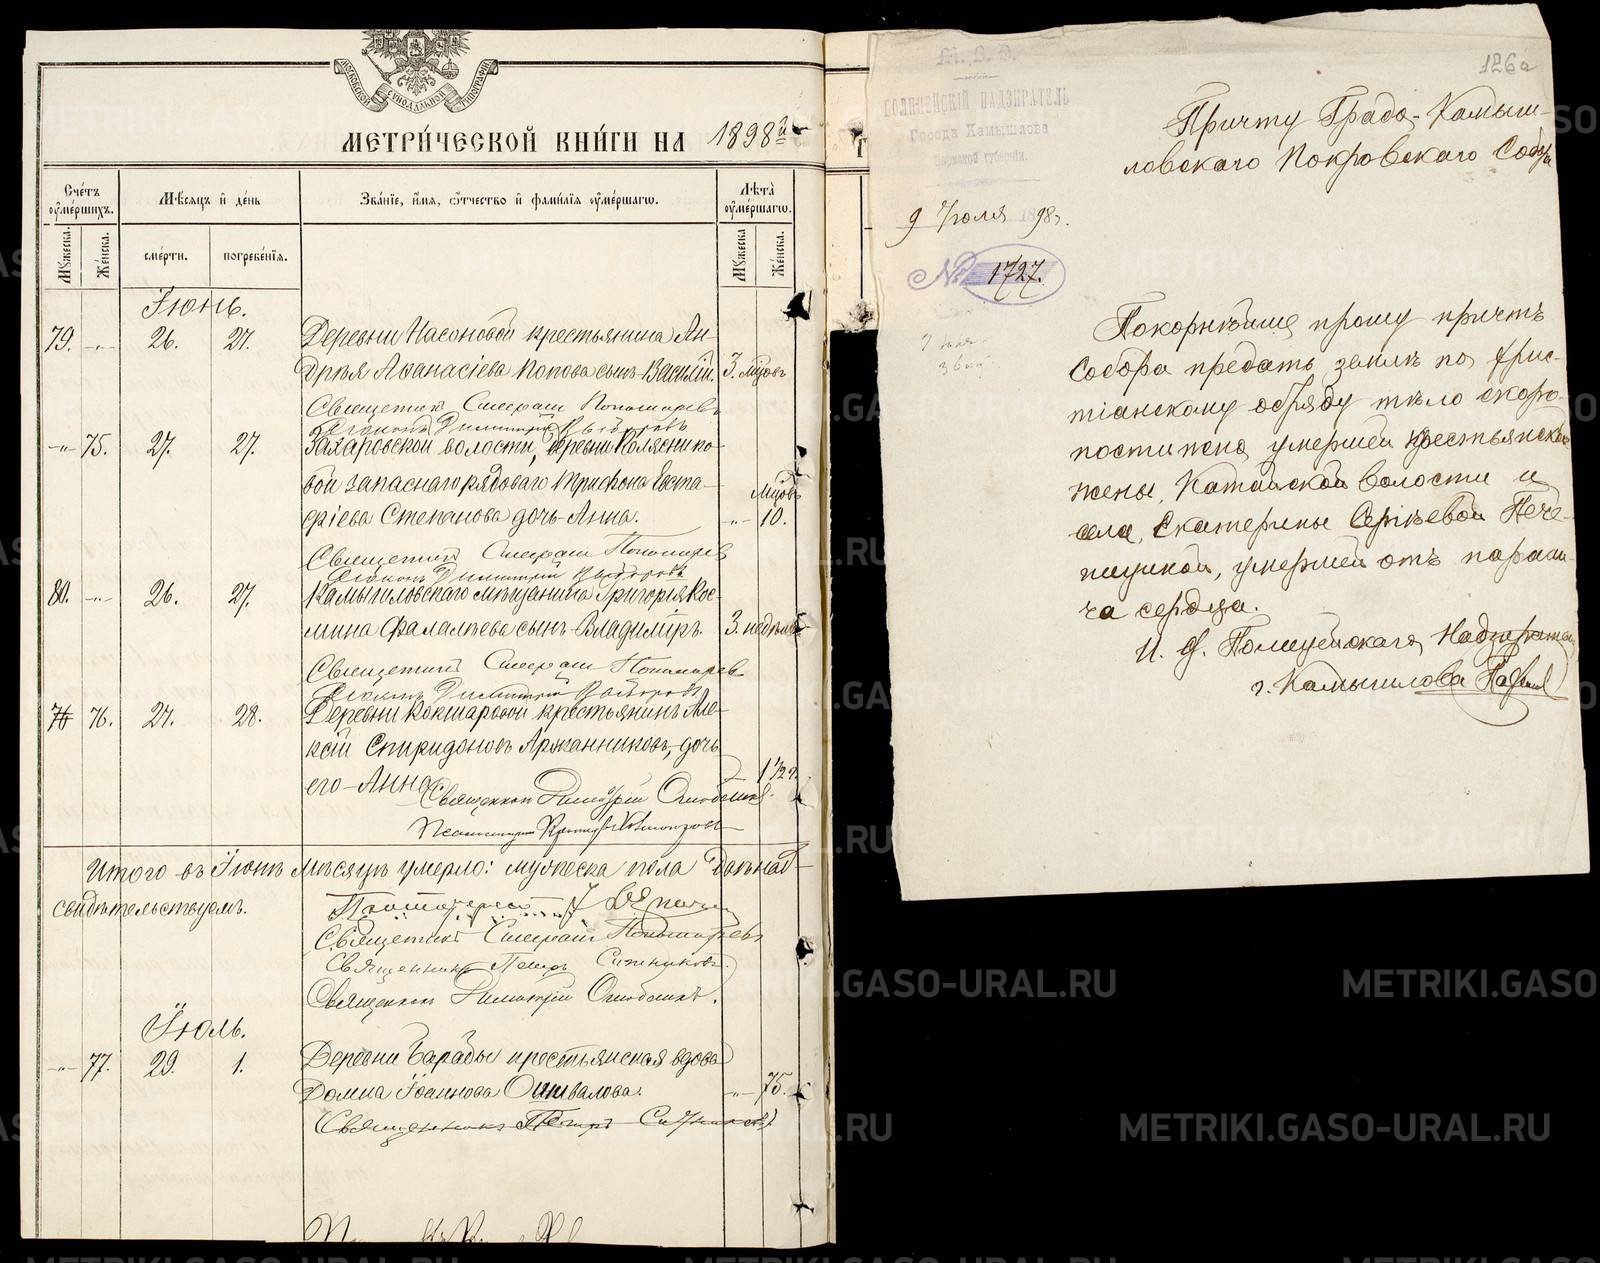 МОСКОВСКОЙ СѴНОДАЛЬНОЙ ТИПОГРАФІИ
МЕТРИ́ЧЕСКОЙ КНИ́ГИ НА 1898 й
Счéтъ ᲂу҆мéршихъ.
Мѣ́сѧцъ и҆ дéнь
Звáнїе, и҆́мѧ, ѻ҆́тчество и҆ фами́лїѧ ᲂу҆мéршагѡ.
Лѣ́та ᲂу҆мéршагѡ.
Мꙋ́жеска.
Жéнска.
смéрти.
погребéнїѧ.
Мꙋ́жеска
Жéнска.
Іюнь.
79. -„- 26. 27. Деревни Насоновой крестьянина Ан-
дрея Аѳанасіева Попова сынъ Василій. 3. мѣсѧ
Священникъ Пономаревъ
Діаконъ Димитрій Выборовъ
-„- 75. 27. 27. Захаровской волости, деревни Колясніко-
вой запаснаго рядоваго Трифона Евста-
фіева Степанова дочь Анна. -„- 10.
Священникъ Пономаревъ
Діаконъ Димитрій Выборовъ
80. -„- 26. 27. Камышловскаго мѣщанина Григорія Кос-
мина Фалалѣева сынъ Владиміръ. 3. недѣли
Священникъ Пономаревъ
Діаконъ Димитрій Выборовъ
76. 27. 28. Деревни Кокшаровой крестьянинъ Але-
ксій Спиридоновъ Аржанниковъ, дочь
его Анна 1 1/2 г.
Священникъ Димитрій
Псаломщикъ
Итого въ Іюнѣ мѣсяцѣ умерло: мужеска пола
свидѣтельствуемъ.
Протоіерей
Священникъ Пономаревъ
Священникъ Петръ Ситниковъ.
Священникъ Димитрій
Іюль.
-„- 77. 29. 1. Деревни Барабы крестьянская вдова
Домна Іоаннова Ошивалова. -„- 75.
Священникъ Петръ Ситниковъ
126а
М. В. Д.
ПОЛИЦЕЙСКІЙ НАДЗИРАТЕЛЬ
Города Камышлова
Пермской губерніи.
9 Іюля 1898 г.
№ 1727.
Причту Градо-Камыш-
ловскаго Покровскаго Собора
Покорнѣйше прошу причтъ
Собора предать землѣ по хрис-
тіанскому обряду тѣло скоро-
постижно умершей крестьянской
жены, Катайской волости и
села, Екатерины Сергѣевой Пече-
умершей отъ парали-
ча сердца.
И. д. Полицейскаго Надзирателя
г. Камышлова